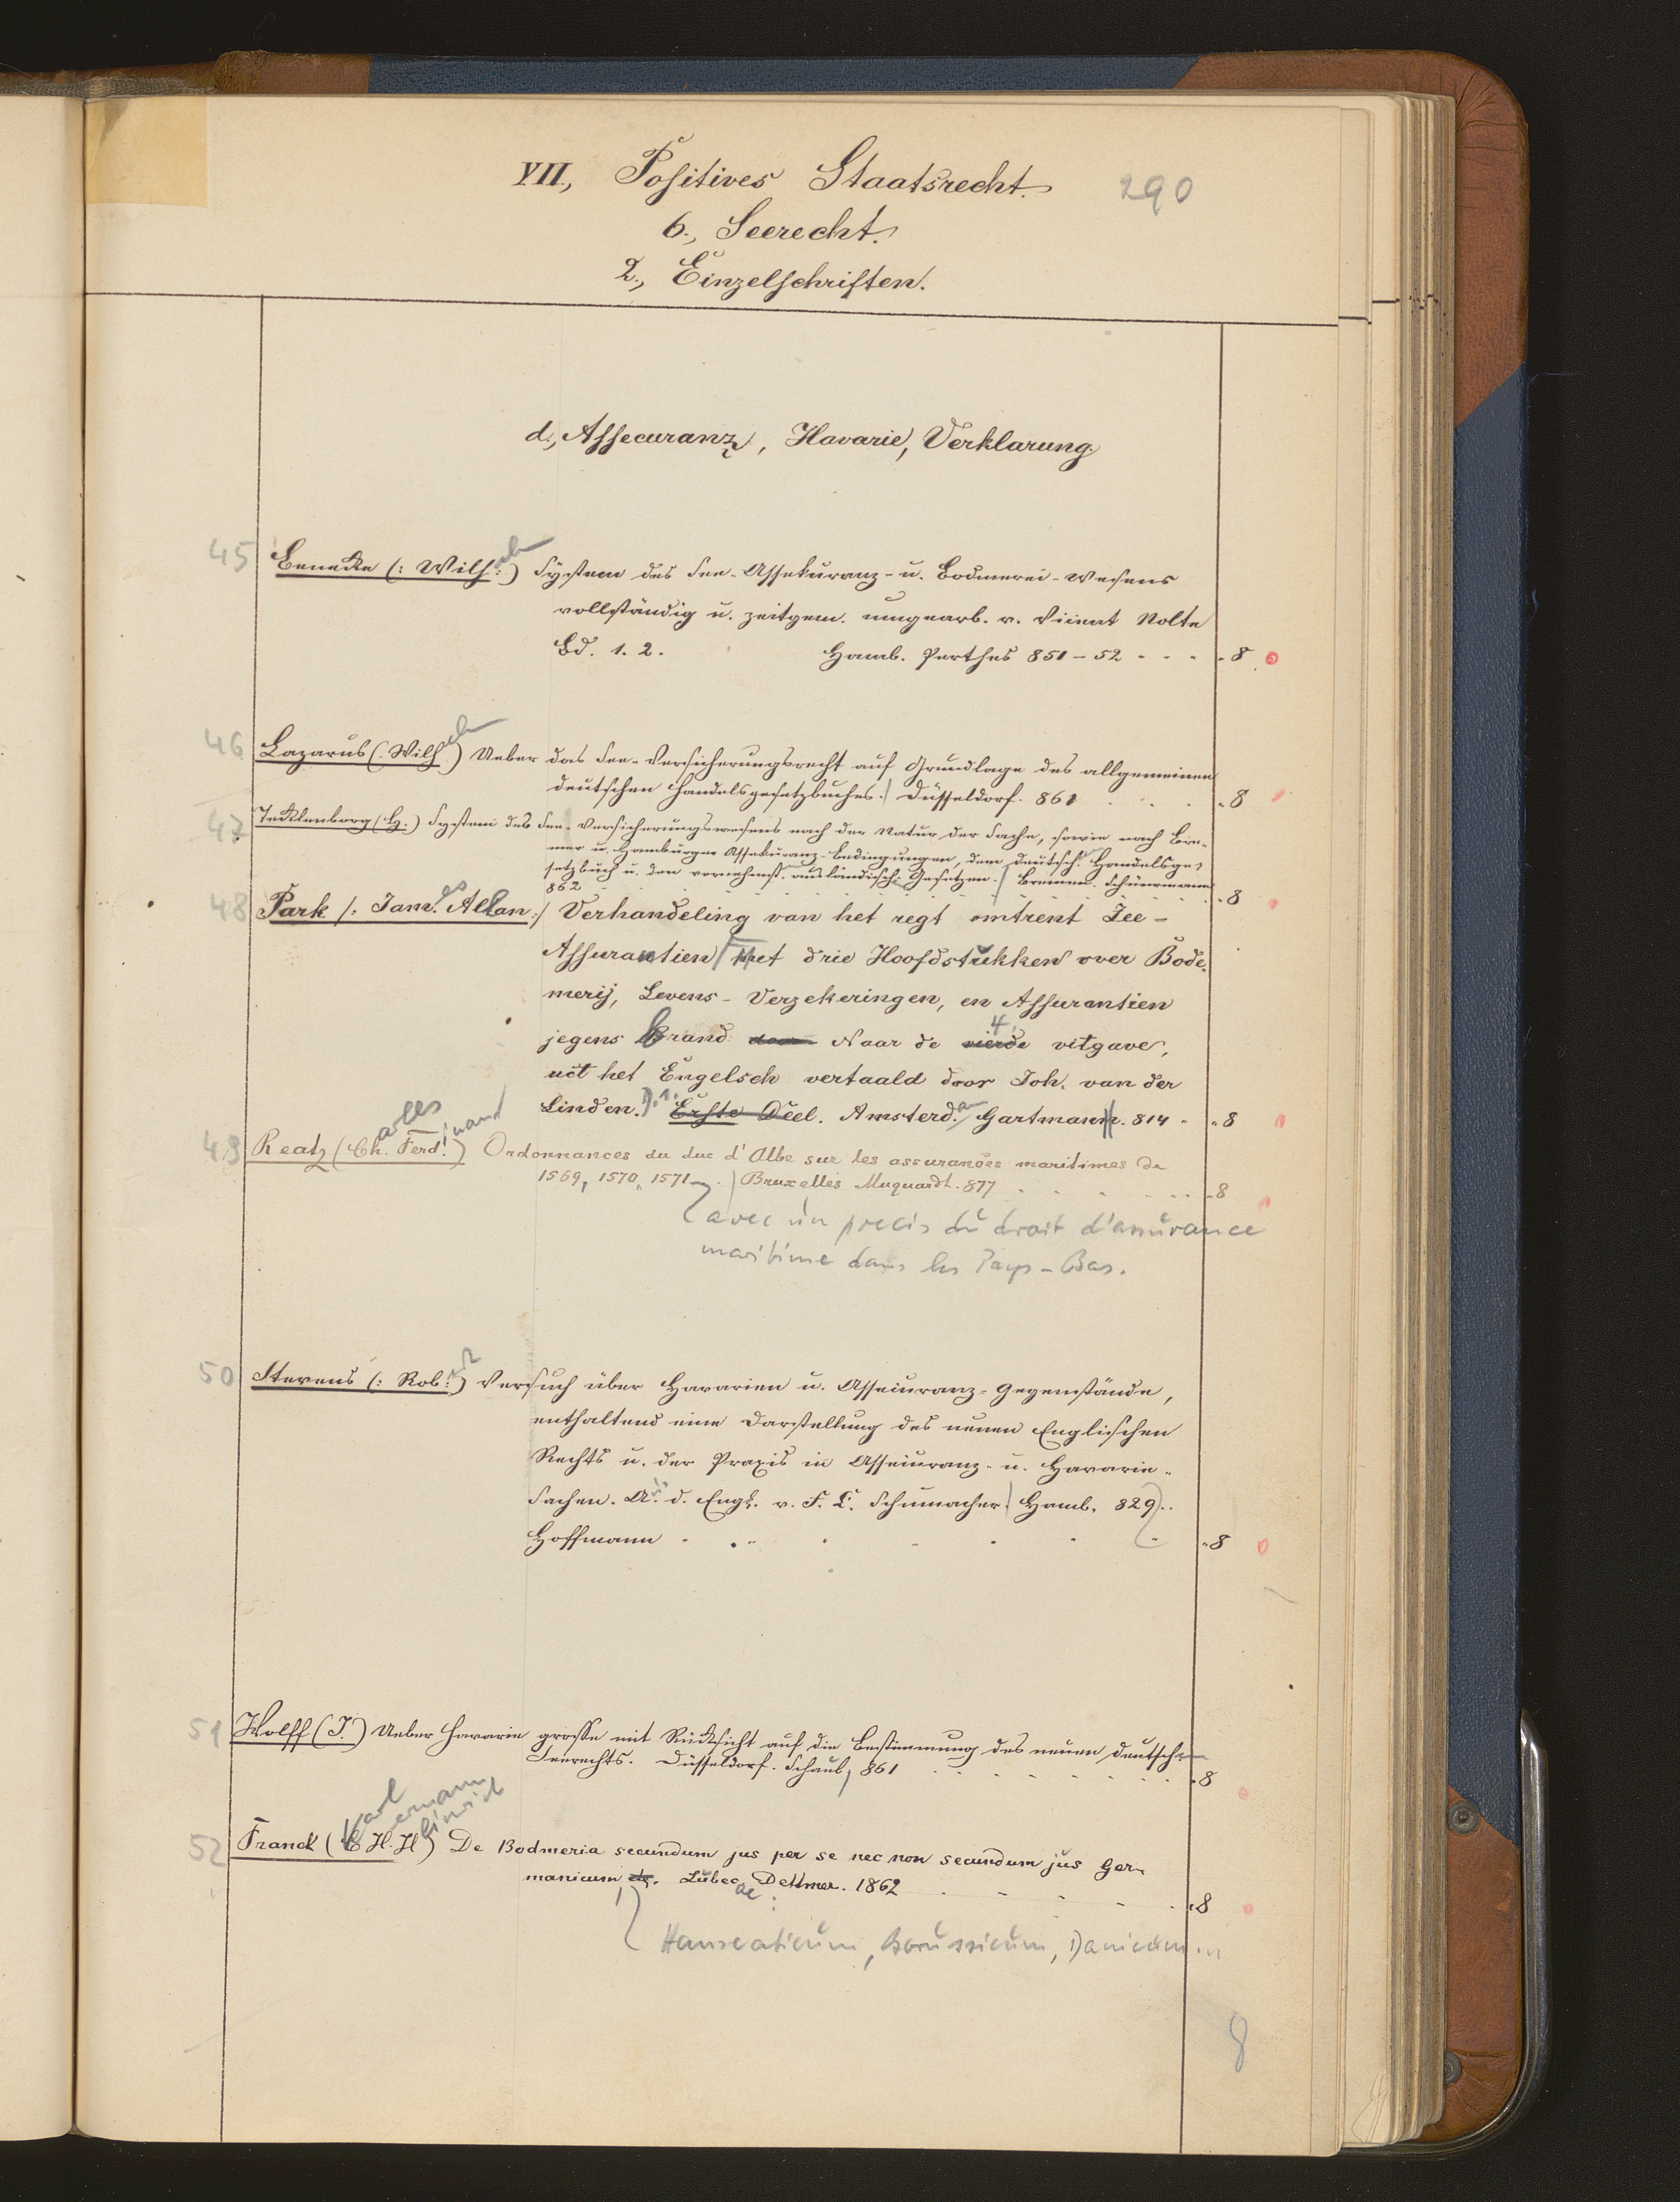 VII., Positives Staatsrecht. 290
6., Seerecht.
2., Einzelschriften.
d., Assecuranz, Havarie, Verklarung.
45 Benecke (: Wilh:elm) System des See-Assekuranz- u. Bodmerei-Wesens
vollständig u. zeitgem. umgearb. v. Vincent Nolte
Bd. 1. 2. Hamb. Perthes 851-52 . . . . 8
46 Lazarus (: Wilhelm) Ueber das See-Versicherungsrecht auf Grundlage des allgemeinen
deutschen Handelsgesetzbuches. Düsseldorf. 861 . . . . 8
47. Tecklenborg (H.) System des See-Versicherungswesens nach der Natur der Sache, sowie nach Bre-
mer u. Hamburger Assekuranz-Bedingungen, dem deutsch. Handelsge-
setzbuch u. den vornehmst. ausländisch. Gesetzen. Bremen. Schünemann
862 . . . . 8
48 Park /: James Allan :/ Verhandeling van het regt omtrent Zee-
Assurantien Met drie Hoofdstukken over Bode-
merij, Levens-Verzekeringen, en Assurantien
jegens brand Naar de vierde 4 uitgave,
uit het Engelsch vertaald door Joh. van der
Linden. D. 1. Erste Deel. Amsterd.a Gartmann. 814 . . 8
49 Reatz (Charles Ferd.inand) Ordonnances du duc d'Albe sur les assurances maritimes de
1569, 1570, 1571 . Bruxelles Muquardt. 877 . . . . 8
avec un precis du droit d'assurance
maritime dans les Pays-Bas.
50 Stevens (: Rob:ert) Versuch über Havarien u. Assecuranz-Gegenstände,
enthaltend eine Darstellung des neuen Englischen
Rechts u. der Praxis in Assecuranz- u. Havarie-
Sachen. A. d. Engl. v. F. C. Schumacher Hamb. 829 . .
Hoffmann . . . . 8
51 Wolff (J.) Ueber Havarie grosse mit Rücksicht auf die Bestimmung des neuen deutsch.
Seerechts. Düsseldorf. Schaub, 861 . . . . 8
Karl Hermann Hinrich
52 Franck (C. H. H) De Bodmeria secundum jus per se nec non secundum jus Ger-
manicum Lubecae: Dettmer. 1862 . . . . 8
Hanseaticum, Borussicum, Danicum
8